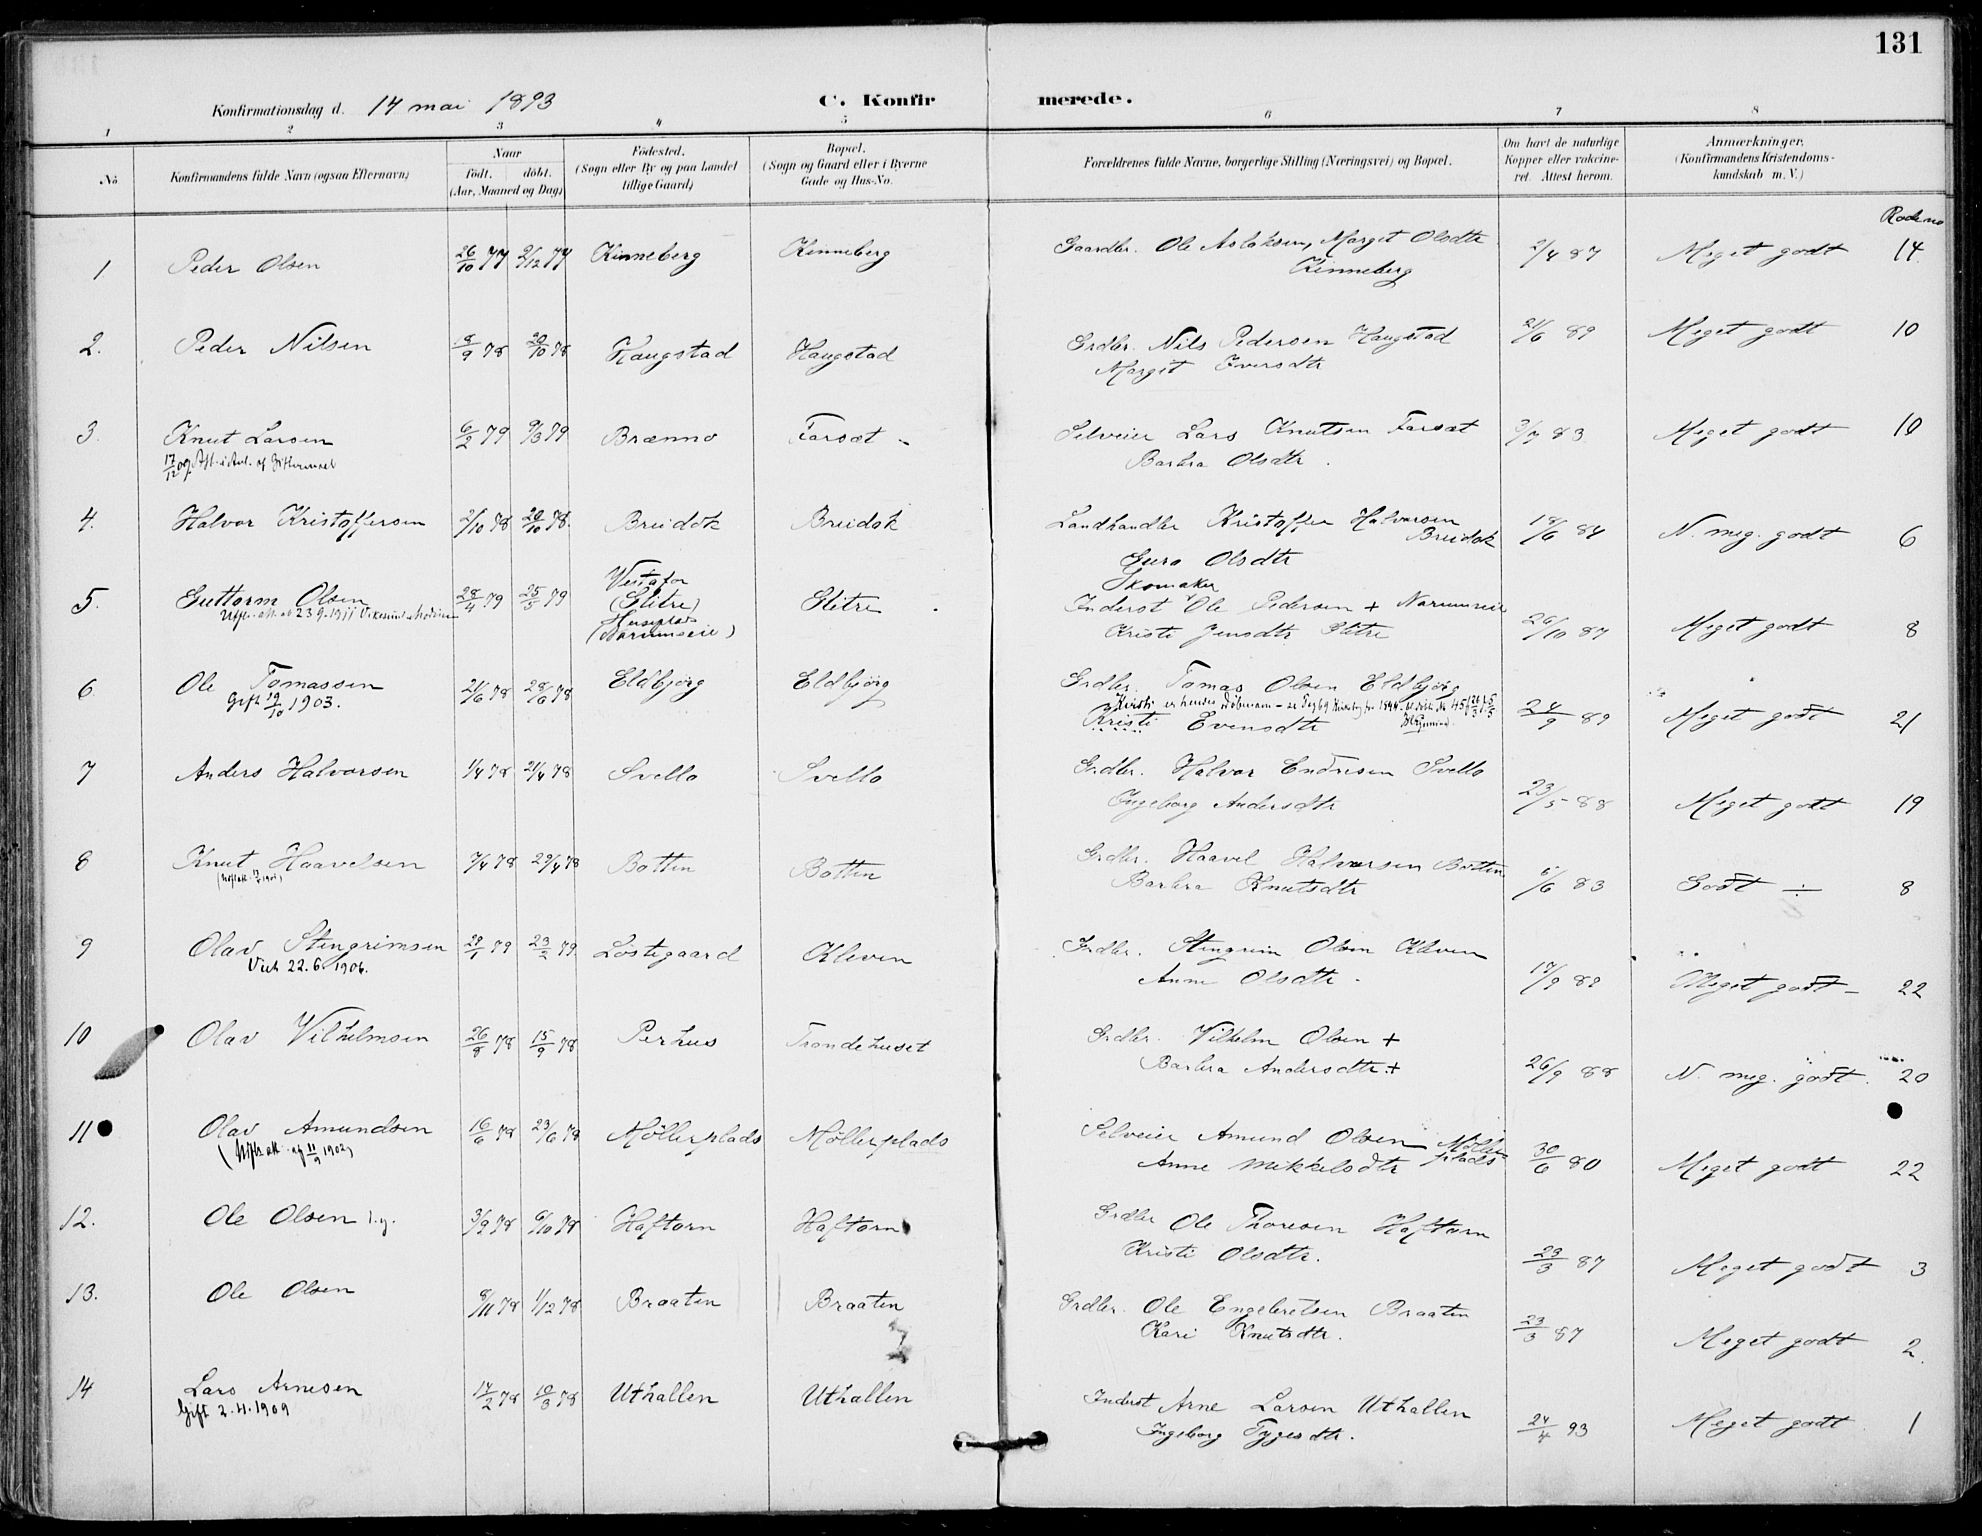 131
Konfirmationsdag d. 14 mai 1893 C. Konfirmerede.
1 2 3 4 5 6 7 8
No
Konfirmandens fulde Navn (ogsaa Efternavn)
Naar
födt. döbt.
(Aar, Maaned og Dag)
Födested.
(Sogn eller By og paa Landet
tillige Gaard)
Bopæl.
(Sogn og Gaard eller i Byerne
Gade og Hus-No.
Forældrenes fulde Navne, borgerlige Stilling (Næringsvei) og Bopæl.
Om havt de naturlige
Kopper eller vakcine-
ret. Attest herom.
Anmærkninger.
(Konfirmandens Kristendoms-
kundskab m. V.)
Rode no
1 Peder Olsen 26/10 77 9/12 77 Kinneberg Kinneberg Gaardbr. Ole Aslaksen, Marget Olsdtr 2/4 87 Meget godt 14
Kinneberg
2. Peder Nilsen 8/9 78 20/10 78 Haugstad Haugstad Grdbr. Nils Pedersen Haugstad 21/6 89 Meget godt 10
Margit Iversdtr
3. Knut Larsen 6/2 79 9/3 79 Brænno Farsæt - Selveier Lars Knutsen Farsæt 3/7 83 Meget godt 10
17/12 09 Barbra Olsdtr.
4. Halvor Kristoffersen 2/10 78 20/10 78. Breidok Breidok Landhandler Kristoffer Halvorsen 18/6 84 N. meg. godt 6
Breidok
Guro Olsdtr
5. Guttorm Olsen 28/4 79 25/5 79 Vestafor
(Glitre)
Huseplads
Glitre
Skomaker
Inderst Ole Pedersen + 26/10 87 Meget godt 8
Kristi Jensdtr Glitre
6 Ole Tomassen 21/6 78 28/6 78 Eldbjørg Eldbjørg Grdbr. Tomas Olsen Eldbjørg
Gift 19/10 1903.
Kristi er hendes döbenavn - se
Kristi Evensdtr 24/9 89 Meget godt 21
7 Anders Halvorsen 1/4 78 21/4 78 Svello Svello Grdbr. Halvor Endresen Svello
Ingeborg Andersdtr 23/5 88 Meget godt 19
8 Knut Haavelsen 7/4 78 29/4 78 Botten Botten Grdbr. Haavel Halvorsen Botten
Barbra Knutsdtr 5/6 83 Godt ÷ 8
9 Olav Stengrimsen 29/1 79 23/2 79 Löstegaard Kleven Grdbr. Stengrim Olsen Kleven
Viet 22.6.1906.
Anne Olsdtr - 17/9 89 Meget godt - 22
10 Olav Vilhelmsen 26/8 78 15/9 78 Perhus Trondehuset Grdbr. Vilhelm Olsen +
Barbra Andersdtr. + 26/9 88 N. meg. godt. 20
11 Olav Amundsen 16/6 78 23/6 78 Møllerplads Møllerplads Selveier Amund Olsen Møller
plads
Anne Mikkelsdtr 30/6 80 Meget godt 22
12. Ole Olsen 3/9 78 6/10 78 Haftorn Haftorn Grdbr Ole Thoresen Haftorn
Kristi Olsdtr. 23/3 87 Meget godt 3
13. Ole Olsen 8/11 78 1/12 78 Braaten Braaten Grdbr. Ole Engebretsen Braaten
Kari Knutsdtr. 23/3 87 Meget godt 2.
14 Lars Arnesen 14/2 78 10/3 78 Uthallen Uthallen Inderst Arne Larsen Uthallen
Gift 2.4.1909
Ingeborg Tygesdtr. 24/4 93 Meget godt 1